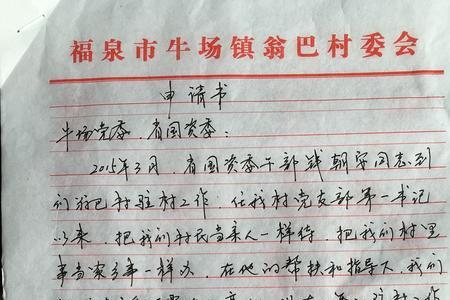 福泉市牛场镇翁巴村委会
申请书
牛场党委、省国资委:
2015年3月,省国资委干部钱朝宇同志到
们翁巴村驻村工作,任我村党支部第一书记
以来,把我们村民当亲人一样待,把我们村里
事当家之事一样办,在他的帮扶和指导下,我们